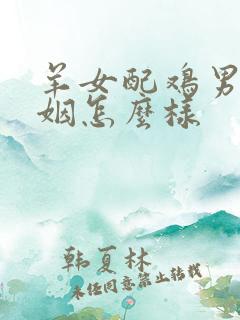 羊女配鸡男
姻怎麼样
韩夏林
未经同意禁止转载